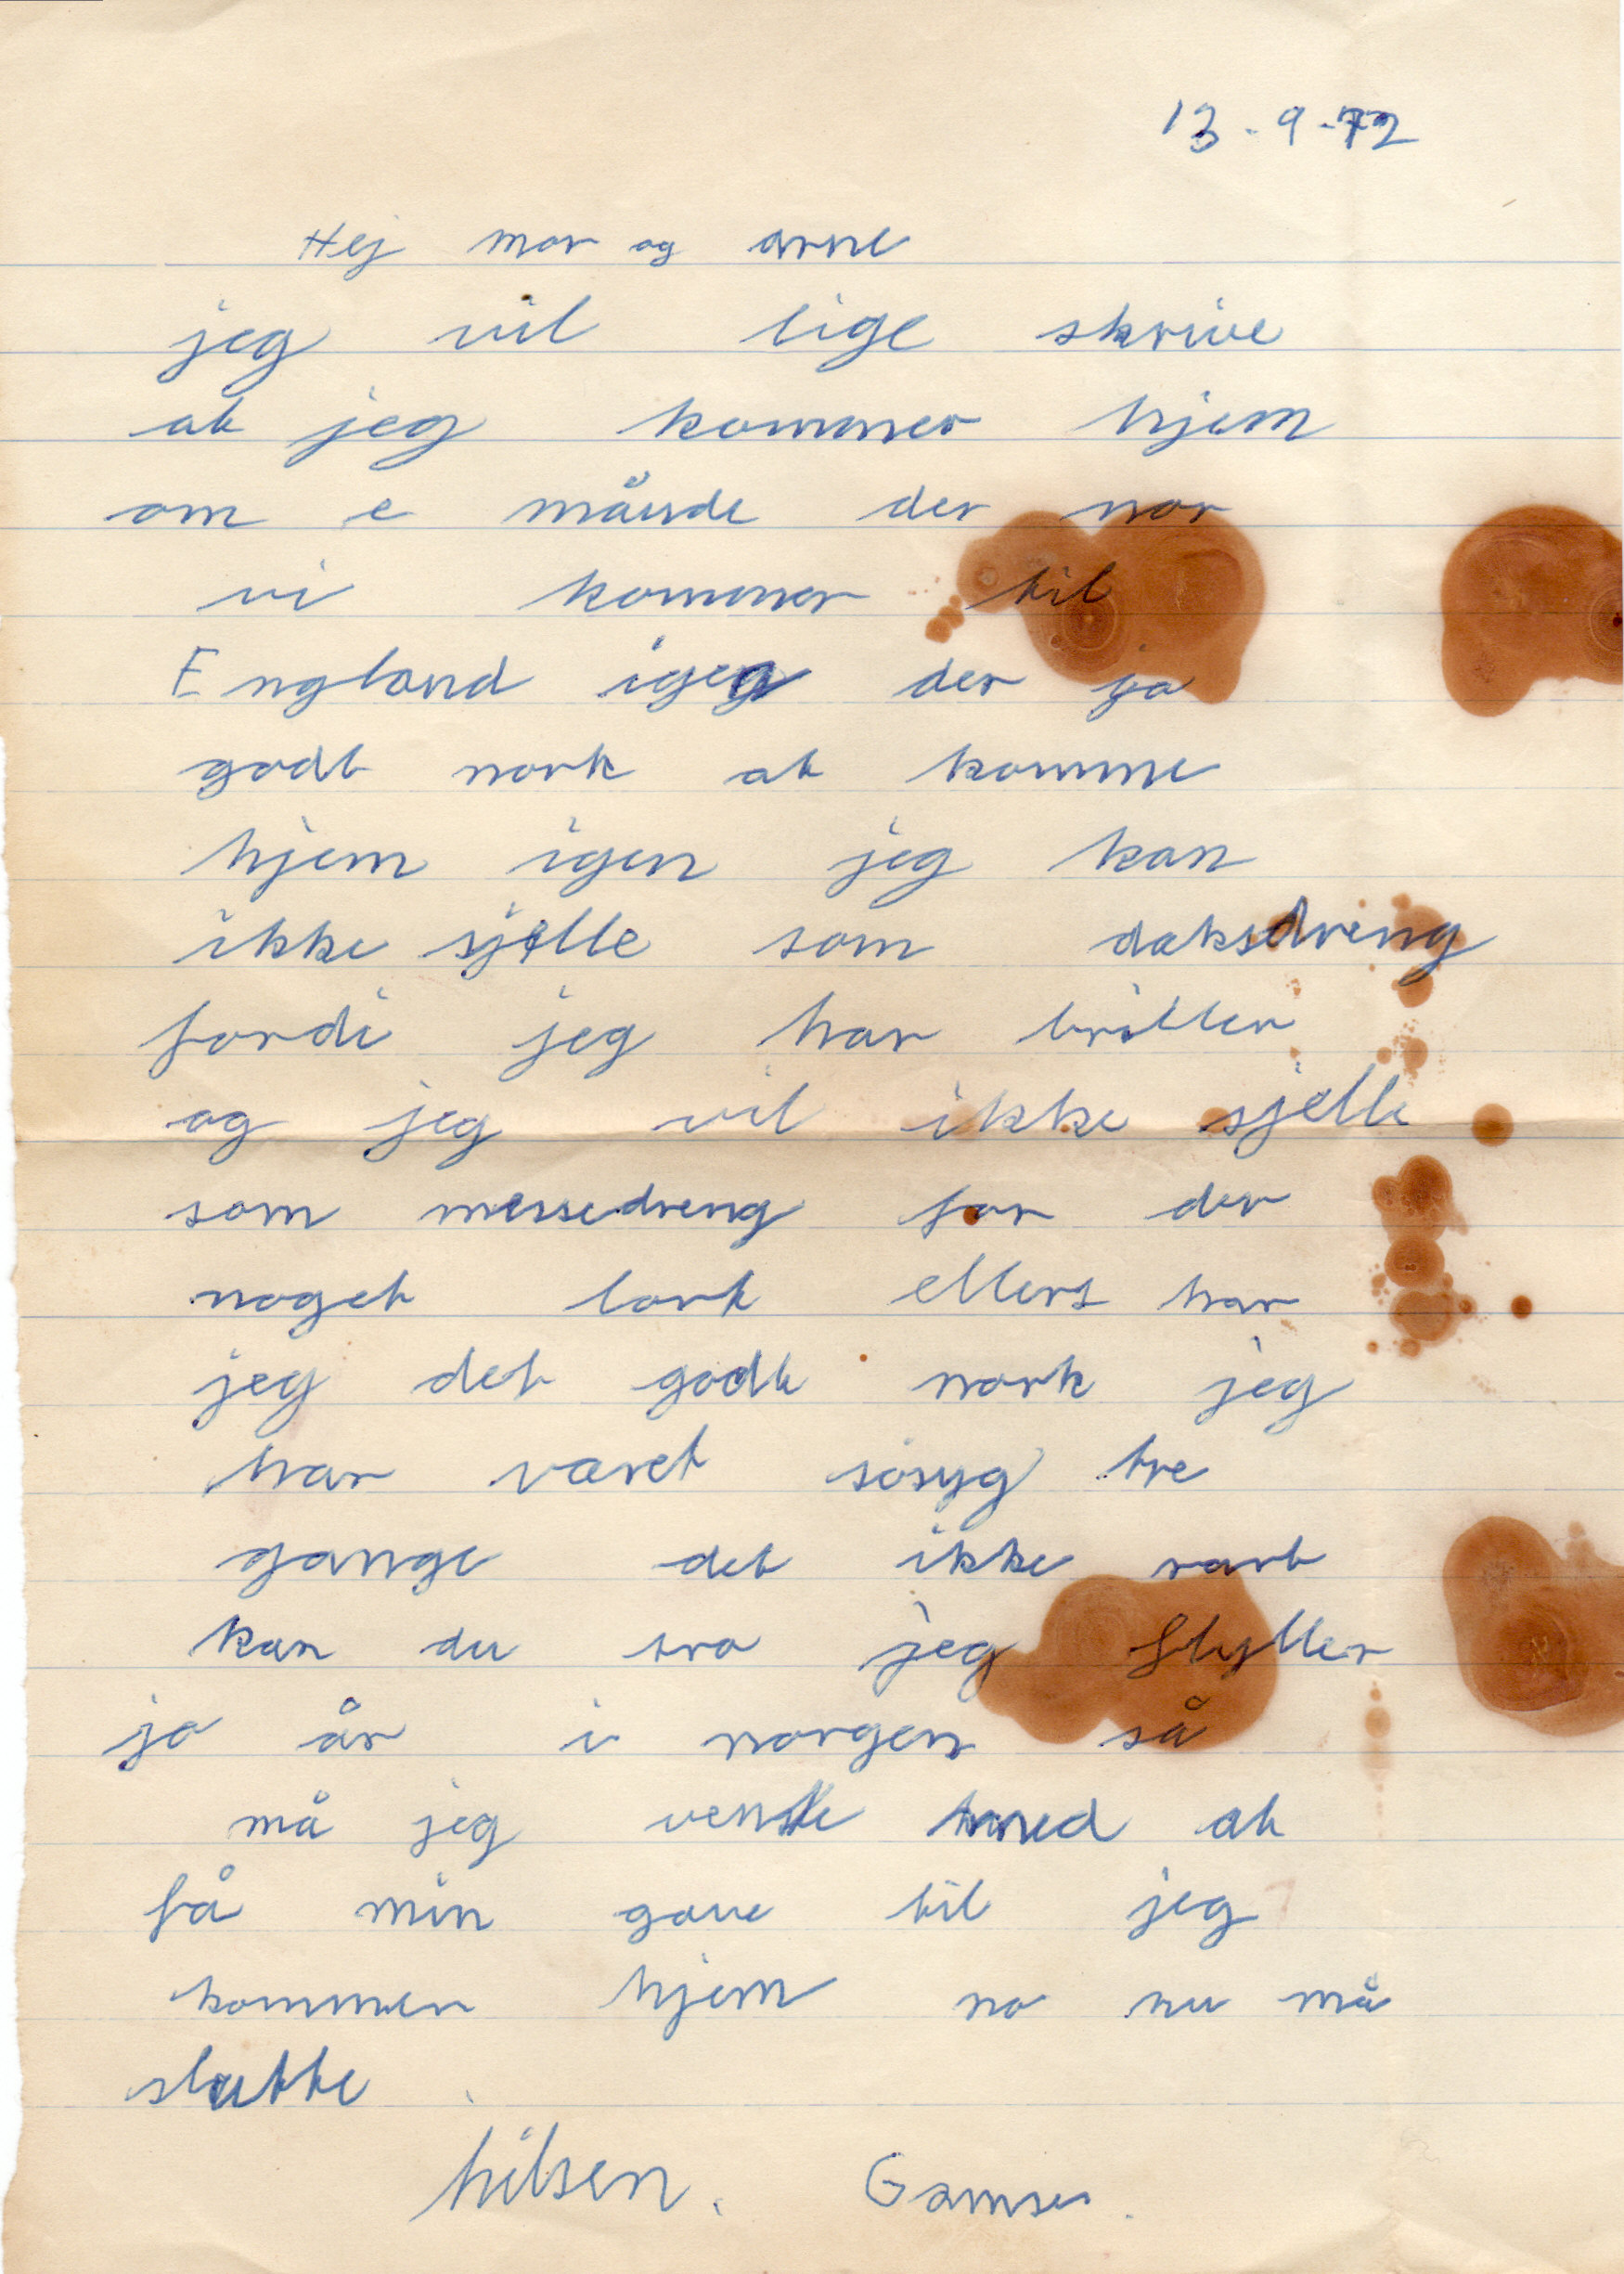 13-9-72
Hej mor og arne
jeg vil lige skrive
at jeg kommer hjem
om e månde der nor
vi kommer til
England igen der jo
godt nork at komme
hjem igen jeg kan
ikke sjelle som daksdreng
fordi jeg har briller
og jeg vil ikke sjelle
som messedreng for der
noget lort ellers har
jeg det godt nork jeg
har været søsyg tre
gange det ikke rart
kan du tro jeg flyller
jo år i morgen så
må jeg vente med at
få min gave til jeg
kommer hjem no nu må
slutte
hilsen. Gamser.